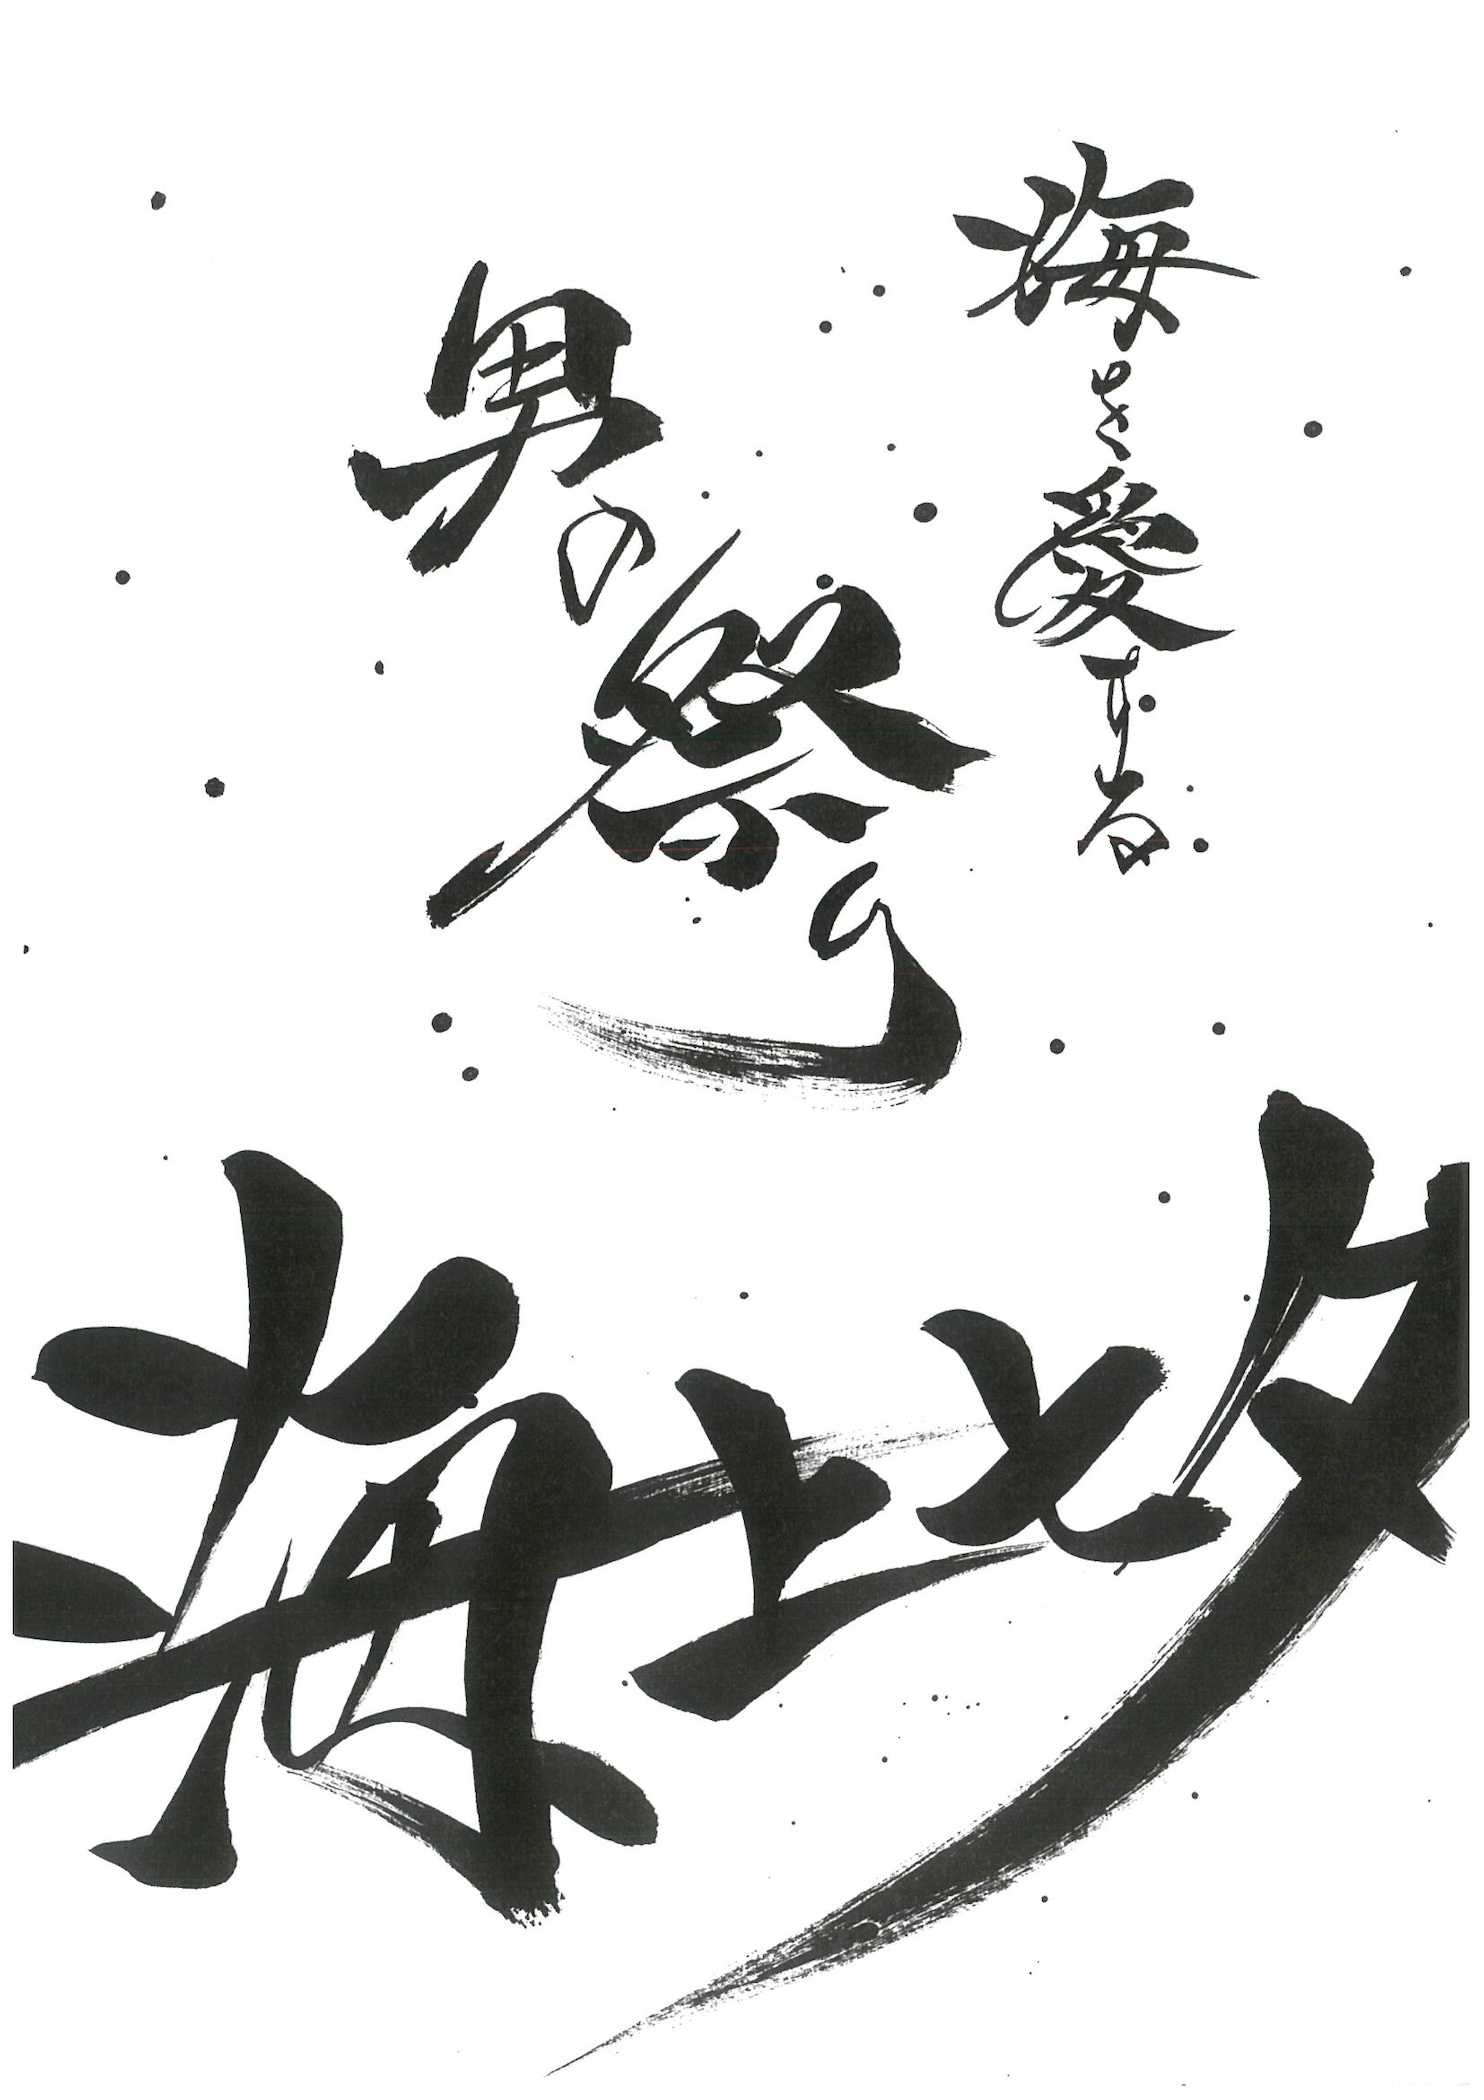 海を愛する
男の祭り
海上七夕